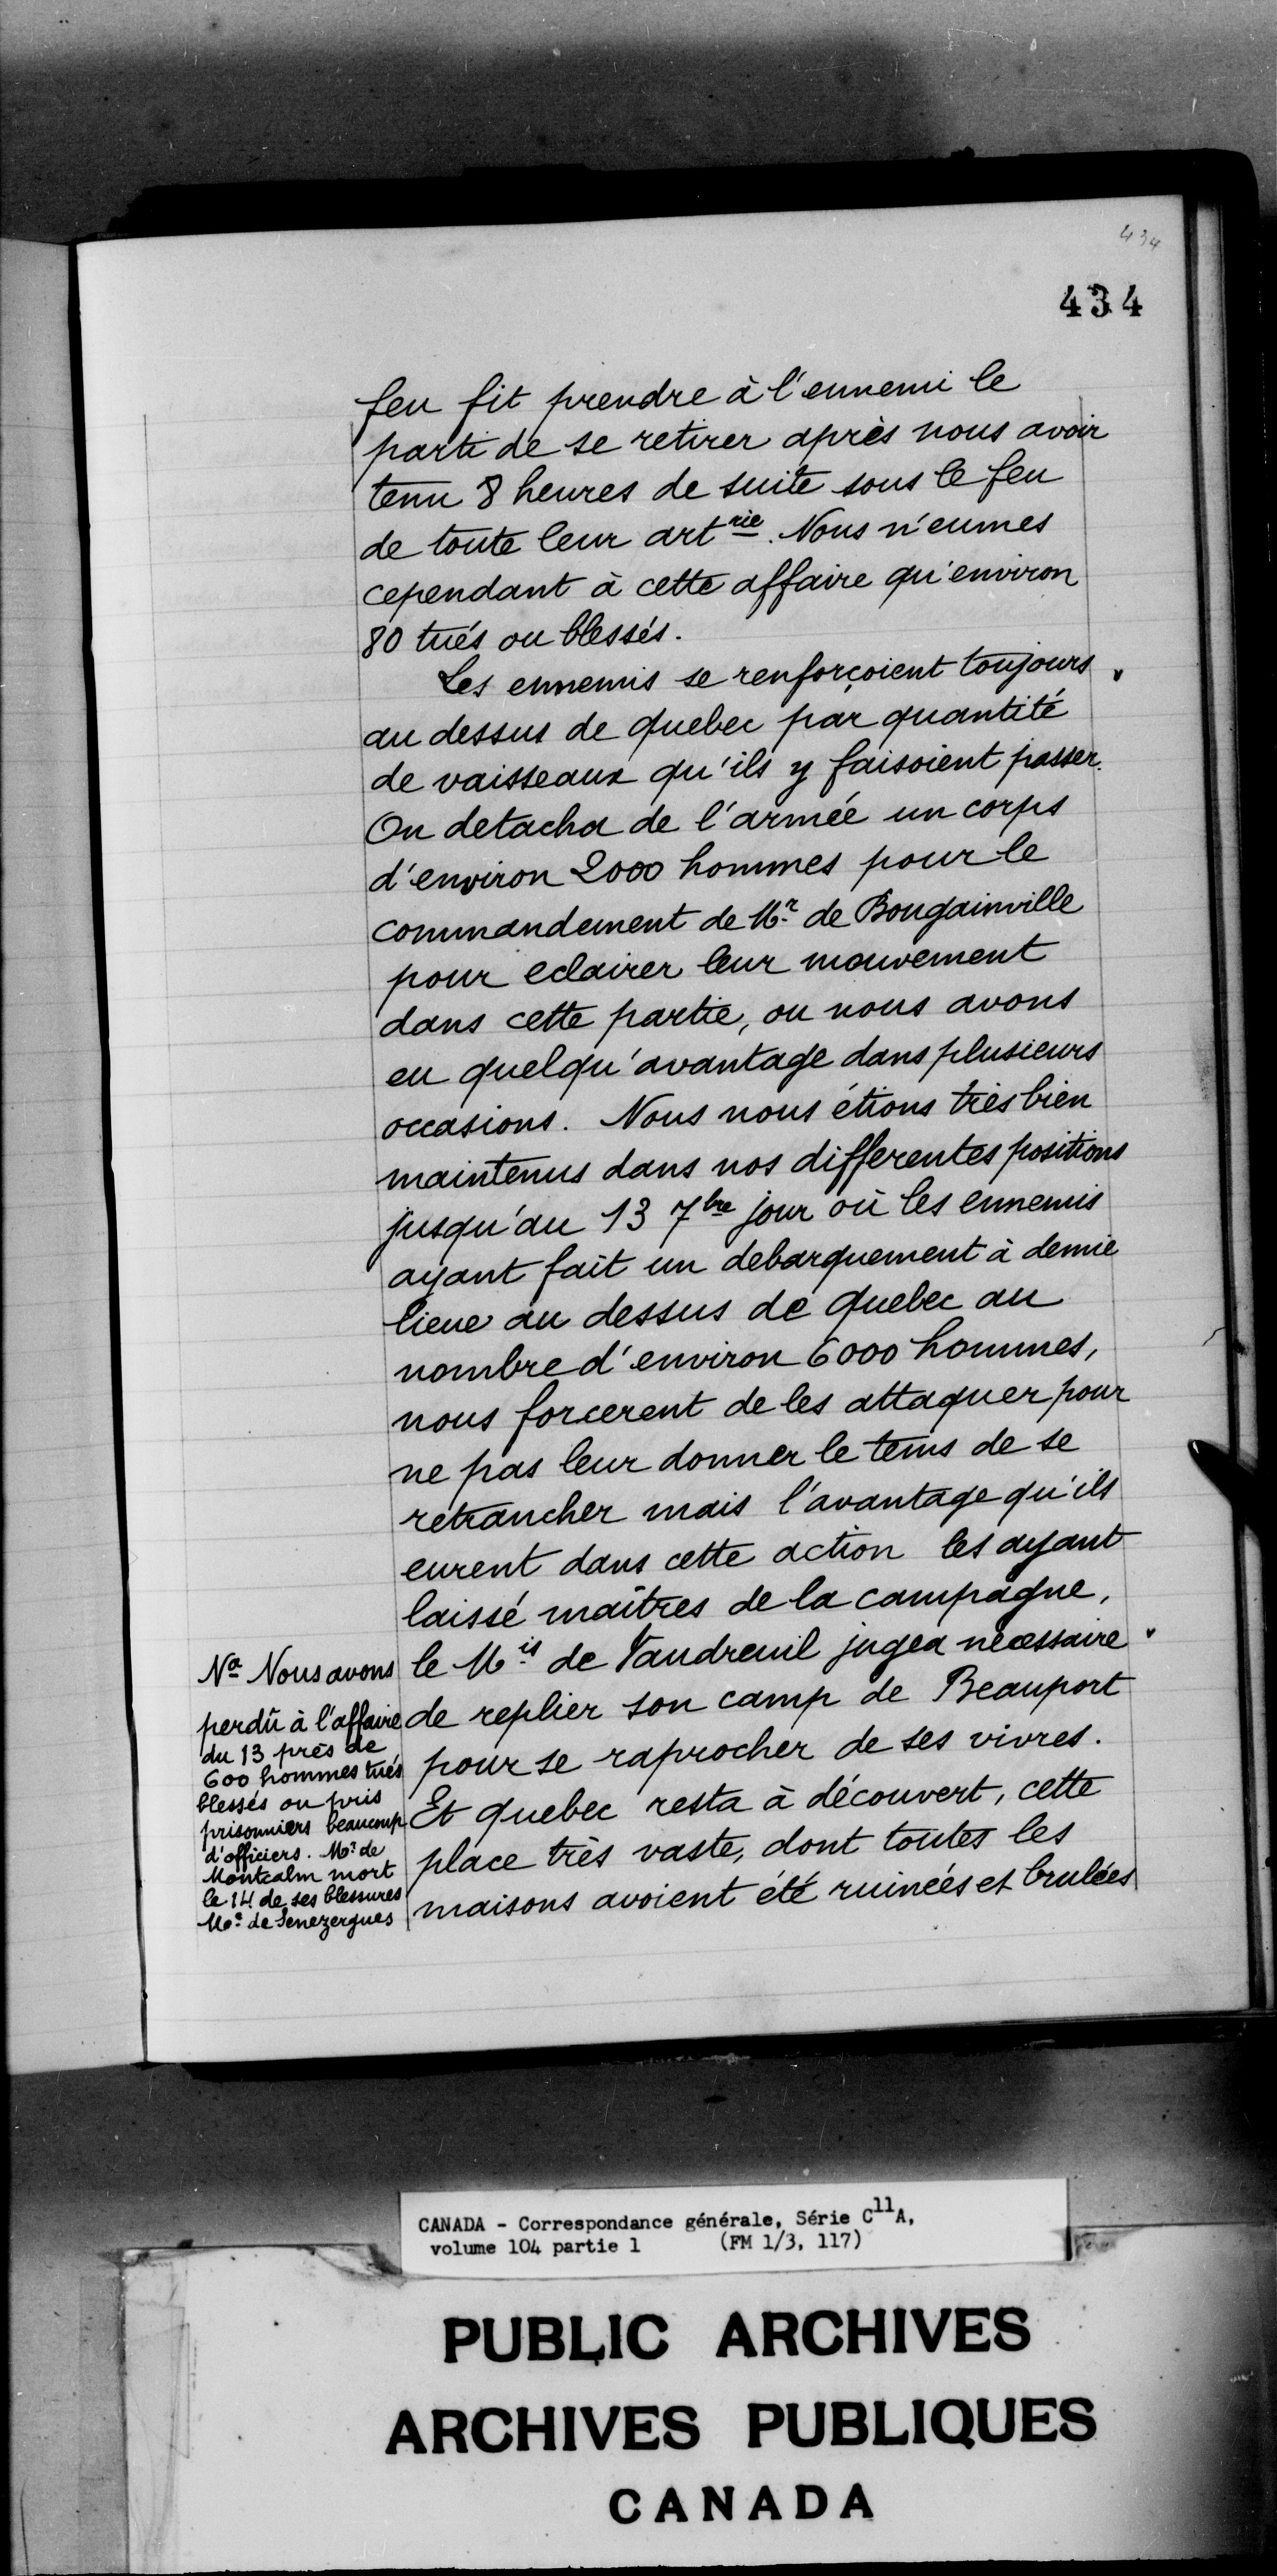 434
434
feu fit prendre à l'ennemi le
parti de se retirer après nous avoir
tenu 8 heures de suite sous le feu
de toute leur artrie. Nous n'eumes
cependant à cette affaire qu'environ
80 tués ou blessés.
Les ennemis se renforçoient toujours
au dessus de quebec par quantité
de vaisseaux qu'ils y faisoient passer.
On detacha de l'armée un corps
d'environ 2000 hommes pour le
commandement de Mr de Bougainville
pour eclairer leur mouvement
dans cette partie, ou nous avons
eu quelqu'avantage dans plusieurs
occasions. Nous nous étions très bien
maintenus dans nos differentes positions
jusqu'au 13 7bre jour où les ennemis
ayant fait un debarquement à demie
lieue au dessus de quebec au
nombre d'environ 6000 hommes,
nous forcerent de les attaquer pour
ne pas leur donner le tems de se
retrancher mais l'avantage qu'ils
eurent dans cette action les ayant
laissé maîtres de la campagne,
le Mis de Vaudreuil jugea necessaire
de replier son camp de Beauport
pour se raprocher de ses vivres.
Et quebec resta à découvert, cette
place très vaste, dont toutes les
maisons avoient été ruinées et brulées
Na Nous avons
perdû à l'affaire
du 13 près de
600 hommes tués
blessés ou pris
prisonniers beaucoup
d'officiers. Mr de
Montcalm mort
le 14 de ses blessures
Mr de Senezergues
CANADA - Correspondance générale, Série C11A,
volume 104 partie 1 (FM 1/3, 117)
PUBLIC ARCHIVES
ARCHIVES PUBLIQUES
CANADA